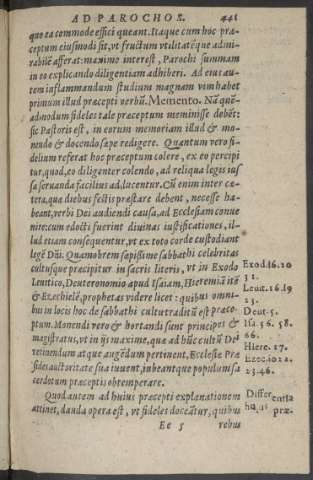 AD PAROCHOS. 441
quo ea commode effici queant. Itaque cum hoc præ-
ceptum eiusmodi sit, vt fructum vtilitatéque admi-
rabilé afferat: maximo interest, Parochi summam
in eo explicando diligentiam adhiberi. Ad eius au-
tem inflammandum studium magnam vim habet
primum illud præcepti verbũ. Memento. Nã quẽ-
admodum fideles tale præceptum meminisse debẽt:
sic Pastoris est, in eorum memoriam illud & mo-
nendo & docendo sæpe redigere. Quantum vero fi-
delium referat hoc præceptum colere, ex eo percipi
tur, quod, eo diligenter colendo, ad reliqua legis ius
sa seruanda facilius adducentur. Cũ enim inter cæ-
tera, quæ diebus festis præstare debent, necesse ha-
beant, verbi Dei audiendi causa, ad Ecclesiam conue
nire: cum edocti fuerint diuinas iustificationes, il-
lud etiam consequentur, vt ex toto corde custodiant
legẽ Dñi. Quamobrem sæpissime sabbathi celebritas
cultusque præcipitur in sacris literis, vt in Exodo
Leuitico, Deuteronomio apud Isaiam, Hieremiã itẽ
& Ezechielẽ, prophetas videre licet: quibus omni-
bus in locis hoc de sabbathi cultu traditũ est præce-
ptum. Monendi vero & hortandi sunt principes &
magistratus, vt in ijs maxime, quæ ad hũc cultũ De-
retinendum atque augẽdum pertinent, Ecclesiæ Præ
sides auctoritate sua iuuent, iubeantque populum sa
cerdotum præceptis obtemperare.
Quod autem ad huius præcepti explanationem
attinet, danda opera est, vt fideles doceãtur, quibus
Ee 5 rebus
Exod. 16. 20
31.
Leuit. 16. 19
23.
Deut. 5.
Isa. 56. 58.
66.
Hiere. 17.
Ezecio 22.
23. 46.
Differentia
huius
præ.